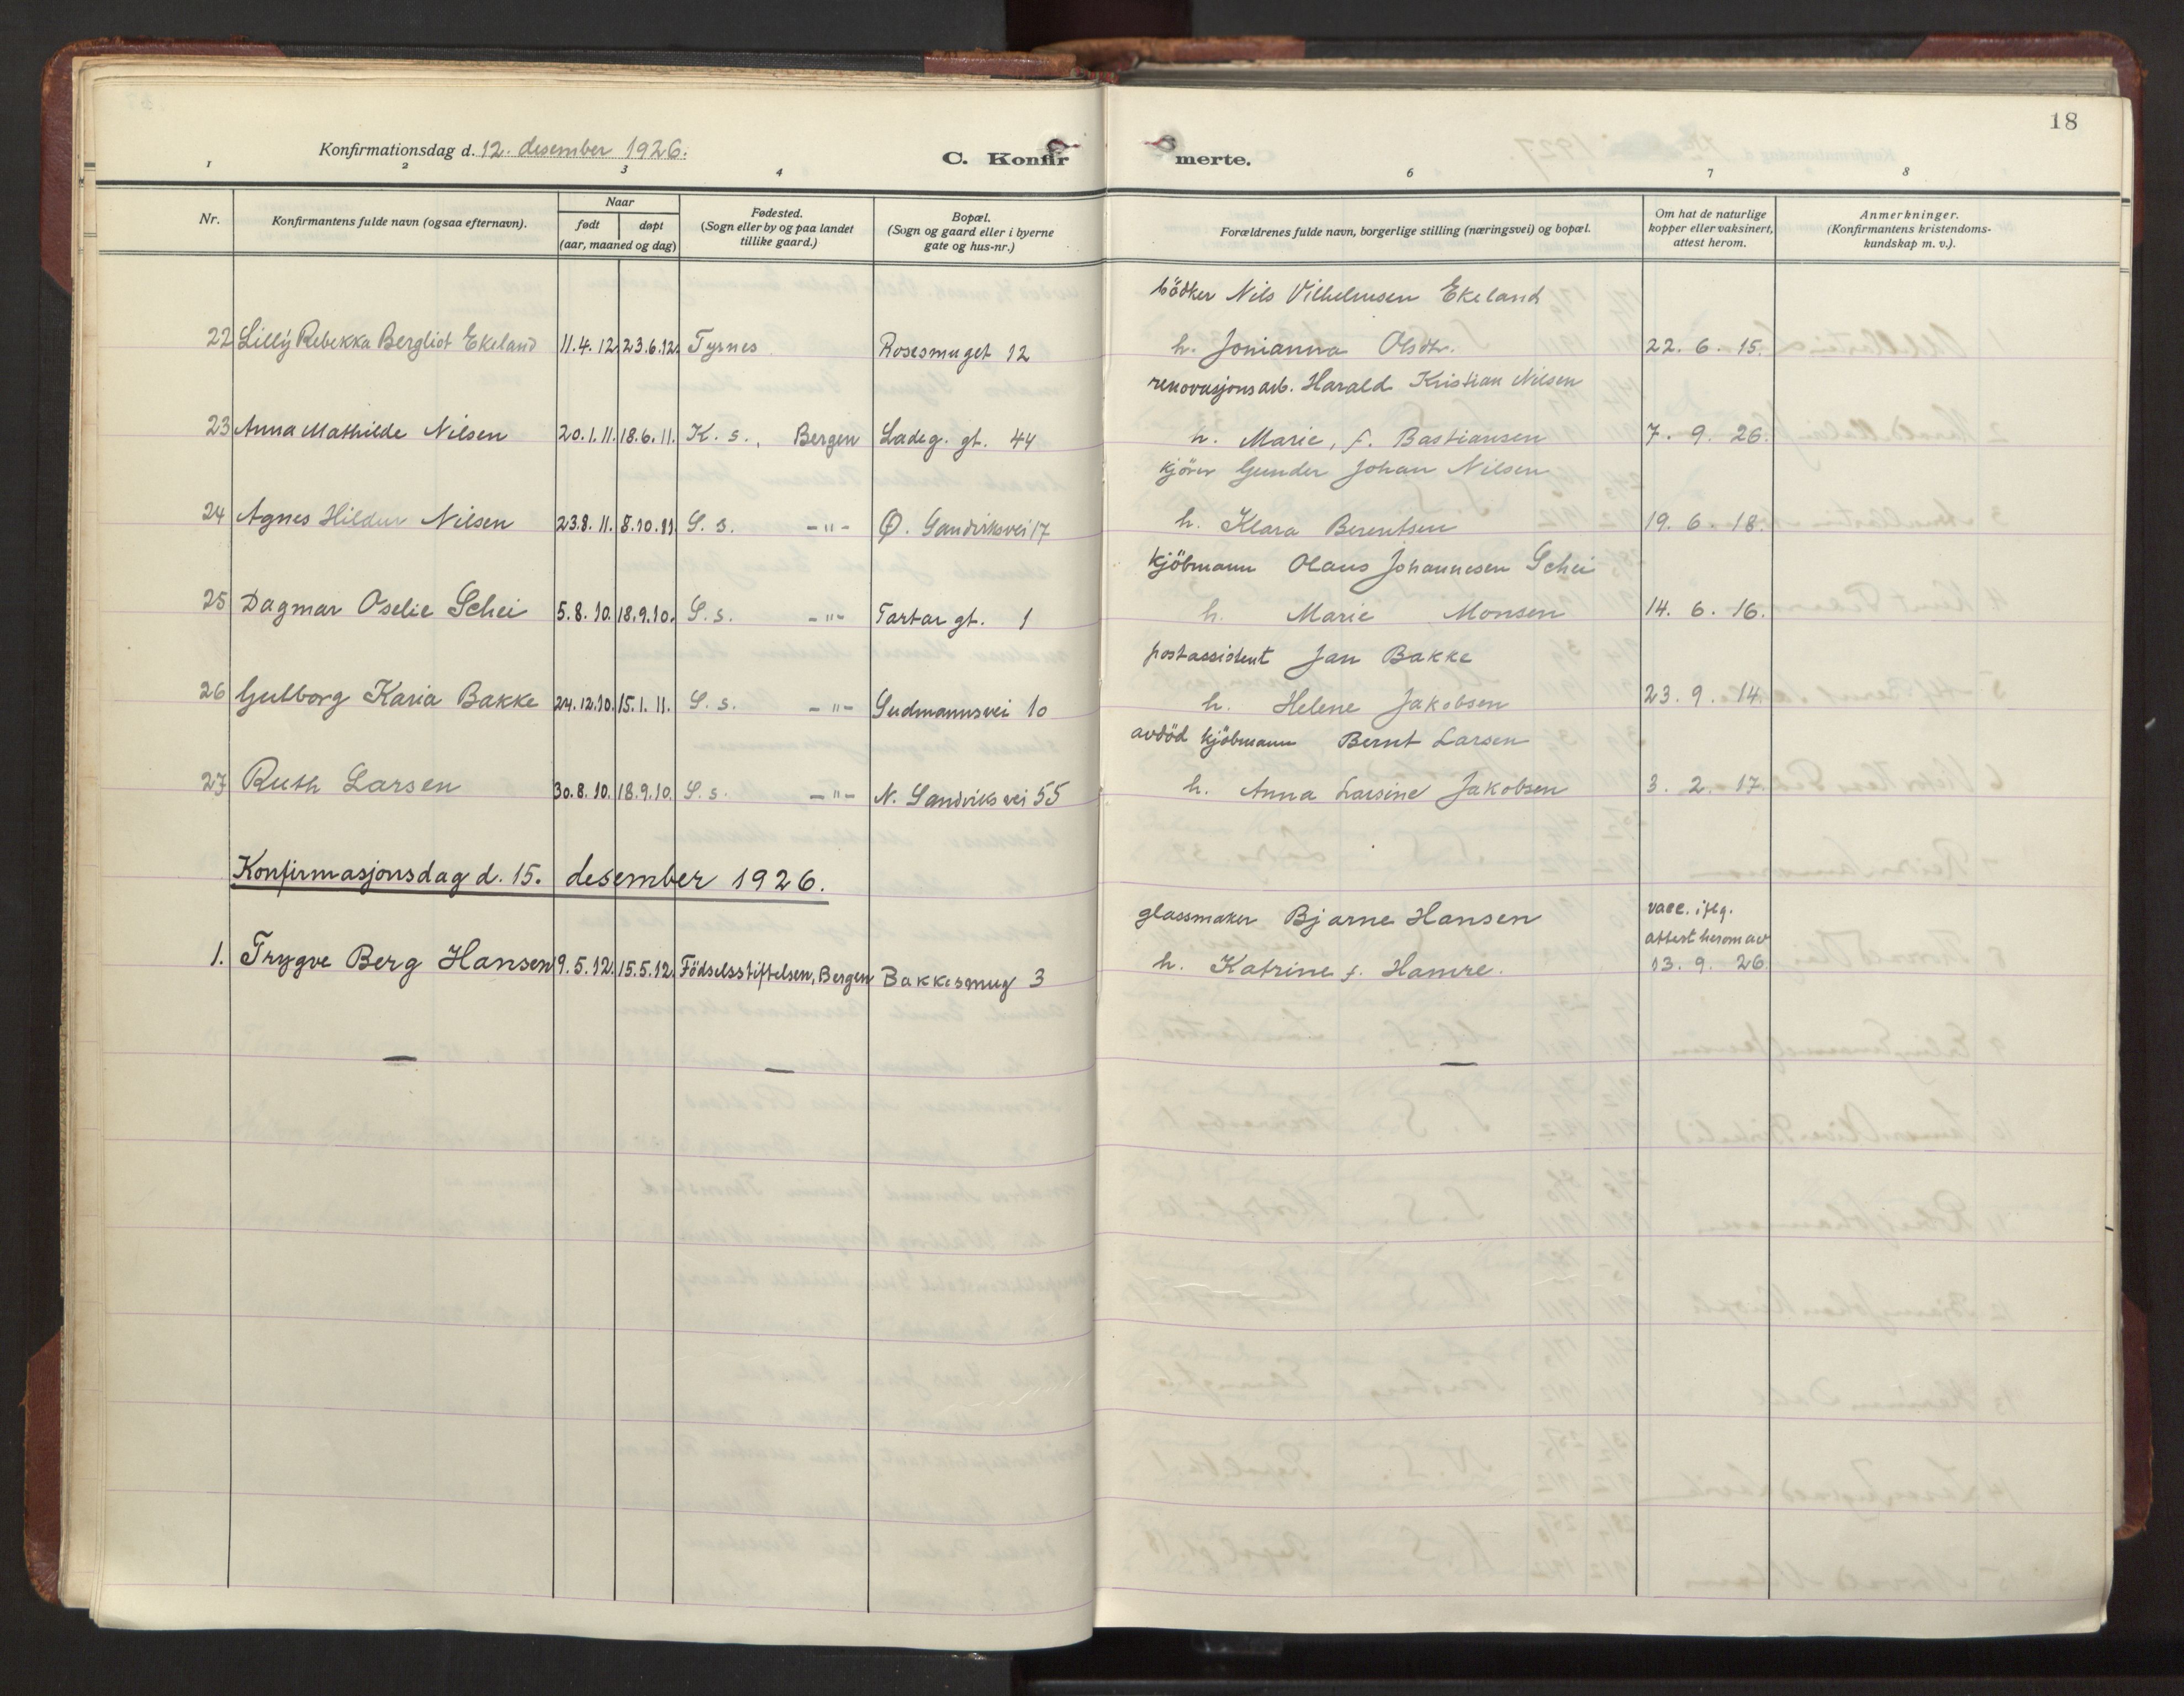 18
Konfirmationsdag d. 12. desember 1926.
C. Konfirmerte.
1 2 3 4 6 7 8
Nr.
Konfirmantens fulde navn (ogsaa efternavn).
Naar
født døpt
(aar, maaned og dag)
Fødested.
(Sogn eller by og paa landet
tillike gaard.)
Bopæl.
(Sogn og gaard eller i byerne
gate og hus-nr.)
Forældrenes fulde navn, borgerlige stilling (næringsvei) og bopæl.
Om hat de naturlige
kopper eller vaksinert,
attest herom.
Anmerkninger.
(Konfirmantens kristendoms-
kundskap m. v.).
bödker Nils Vilhelmsen Ekeland
22 Lilly Rebekka Bergliot Ekeland 11.4.12. 23.6.12. Tysnes Rosesmuget 12 h. Jonianna Olsdtr. 22. 6. 15.
renovasjonsarb. Harald Kristian Nilsen
23 Anna Mathilde Nilsen 20.1.11. 18.6.11. K. s., Bergen Ladeg. gt. 44 h. Marie, f. Bastiansen 7. 9. 26.
kjörer Gunder Johan Nilsen
24 Agnes Hildur Nilsen 23.8.11. 8.10.11. S. s. -"- Ø. Sandviksvei 17 h. Klara Berentsen 19. 6. 18.
kjöbmann Olaus Johannesen Schei
25 Dagmar Oselie Schei 5.8.10. 18.9.10. S. s. -"- Tartar gt. 1 h. Marie Monsen 14. 6. 16.
postassistent Jan Bakke
26 Gutborg Karia Bakke 24.12.10. 15.1.11. S. s. -"- Gudmannsvei 10 h. Helene Jakobsen 23. 9. 14.
avdöd kjöbmann Bernt Larsen
27 Ruth Larsen 30.8.10. 18.9.10. S. s. -"- N. Sandviksvei 55 h. Anna Larsine Jakobsen 3. 2. 17.
Konfirmasjonsdag d. 15. desember 1926.
glassmaker Bjarne Hansen vacc. iflg.
attest herom av
1. Trygve Berg Hansen 9.5.12. 15.5.12. Födselsstiftelsen, Bergen Bakkesmug 3 h. Katrine f. Hamre. 13. 9. 26.
— — —